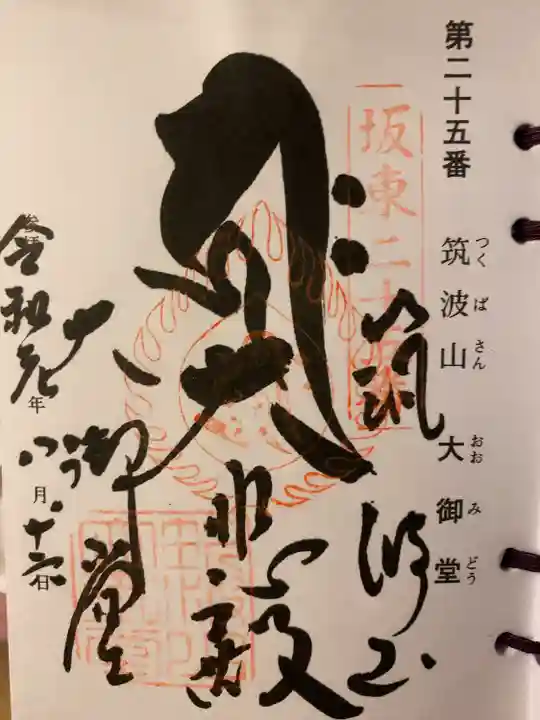 第二十五番 筑波山 大御堂
つくばさん おおみどう
坂東二十五番
筑波山
大悲殿
大御堂
令和元年
八月十六日